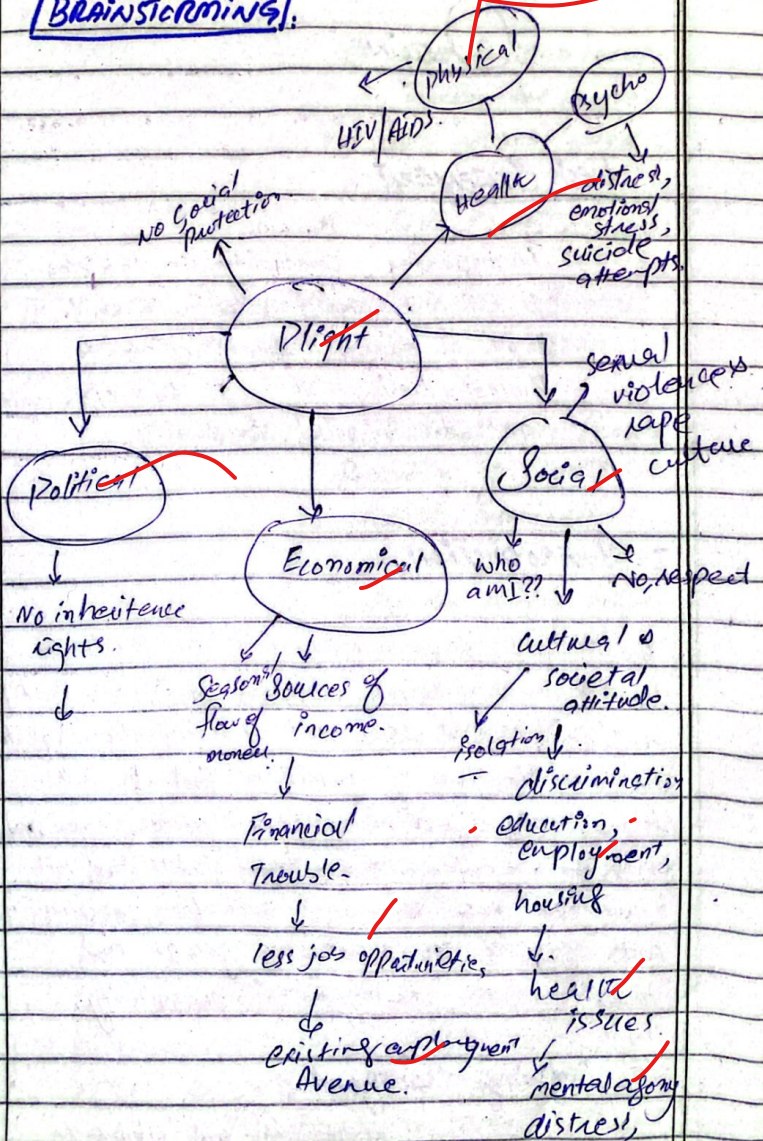 BRAINSTORMING:
Physical
HIV/AIDS.
Psycho
Health
distress,
emotional
stress,
suicide
attempts.
No Social
Protection
Plight
Political
No inheritence
rights.
Economical
Seasonal
flow of
money.
Sources of
income.
Financial
Trouble.
less job opportunities,
existing employment
Avenue.
Social
sexual
violences
rape
culture
who
am I??
No, respect
Cultural &
societal
attitude.
isolation
discrimination
education,
employment,
housing
health
issues
mental agony
distress,